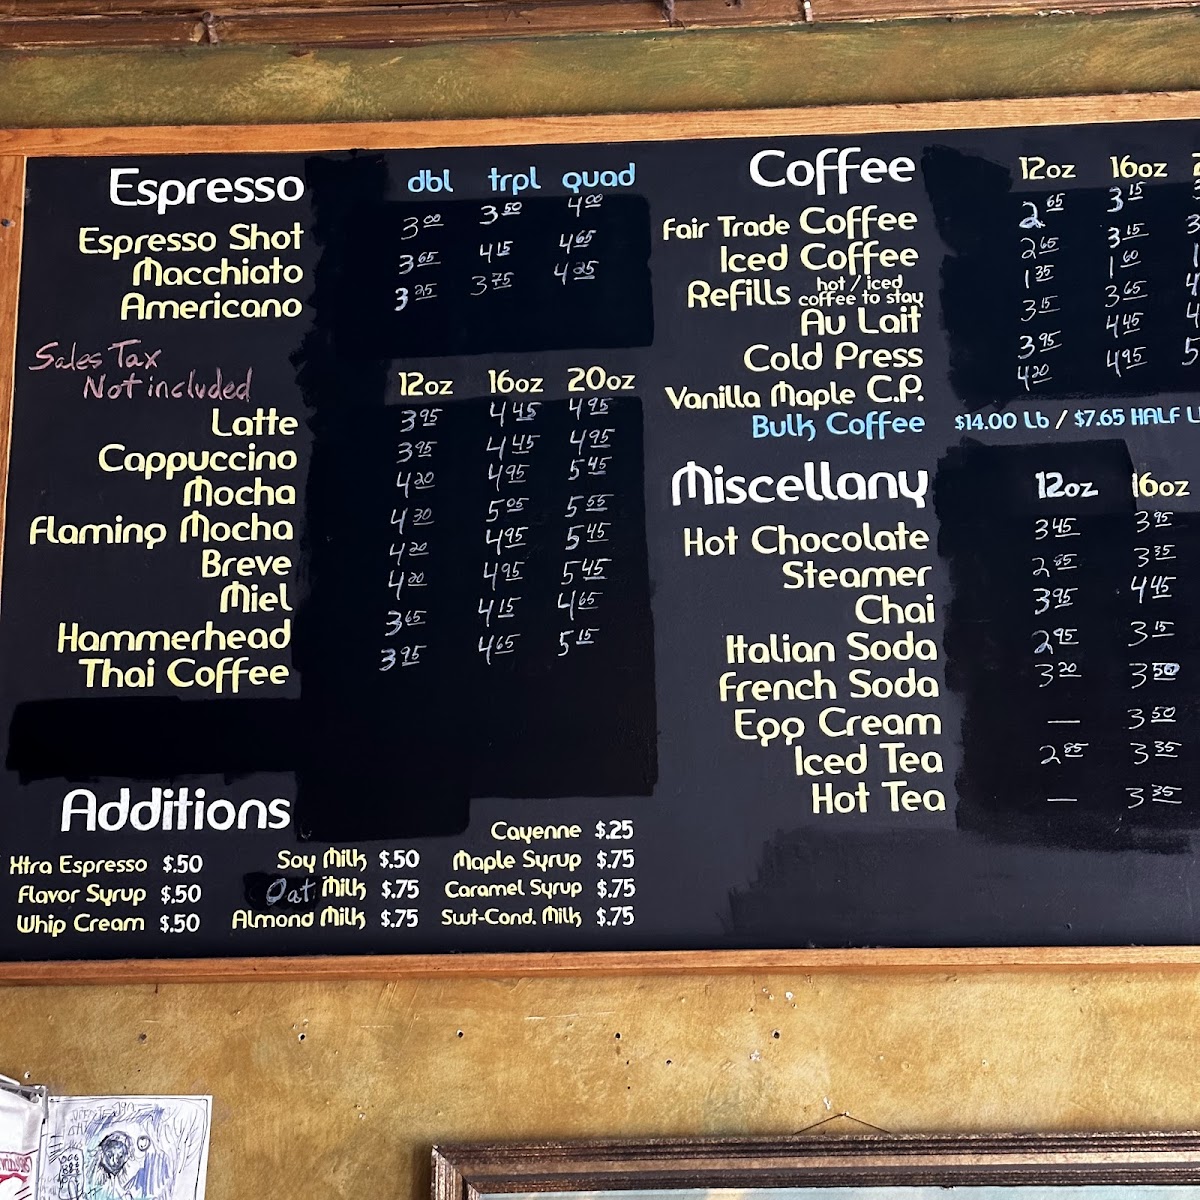 Espresso dbl trpl quad
Espresso Shot 3.00 3.50 4.00
Macchiato 3.65 4.15 4.65
Americano 3.25 3.75 4.25
Sales Tax
Not included
12oz 16oz 20oz
Latte 3.95 4.45 4.95
Cappuccino 3.95 4.45 4.95
Mocha 4.20 4.95 5.45
Flaming Mocha 4.30 5.05 5.55
Breve 4.20 4.95 5.45
Miel 4.20 4.95 5.45
Hammerhead 3.65 4.15 4.65
Thai Coffee 3.95 4.65 5.15
Additions
Xtra Espresso $.50
Flavor Syrup $.50
Whip Cream $.50
Soy Milk $.50
Oat Milk $.75
Almond Milk $.75
Cayenne $.25
Maple Syrup $.75
Caramel Syrup $.75
Swt-Cond. Milk $.75
Coffee 12oz 16oz
Fair Trade Coffee 2.65 3.15
Iced Coffee 2.65 3.15
Refills hot / iced coffee to stay 1.35 1.60
Au Lait 3.15 3.65
Cold Press 3.95 4.45
Vanilla Maple C.P. 4.20 4.95
Bulk Coffee $14.00 Lb / $7.65 HALF L
Miscellany 12oz 16oz
Hot Chocolate 3.45 3.95
Steamer 2.85 3.35
Chai 3.95 4.45
Italian Soda 2.95 3.15
French Soda 3.20 3.50
Egg Cream — 3.50
Iced Tea 2.85 3.35
Hot Tea — 3.35